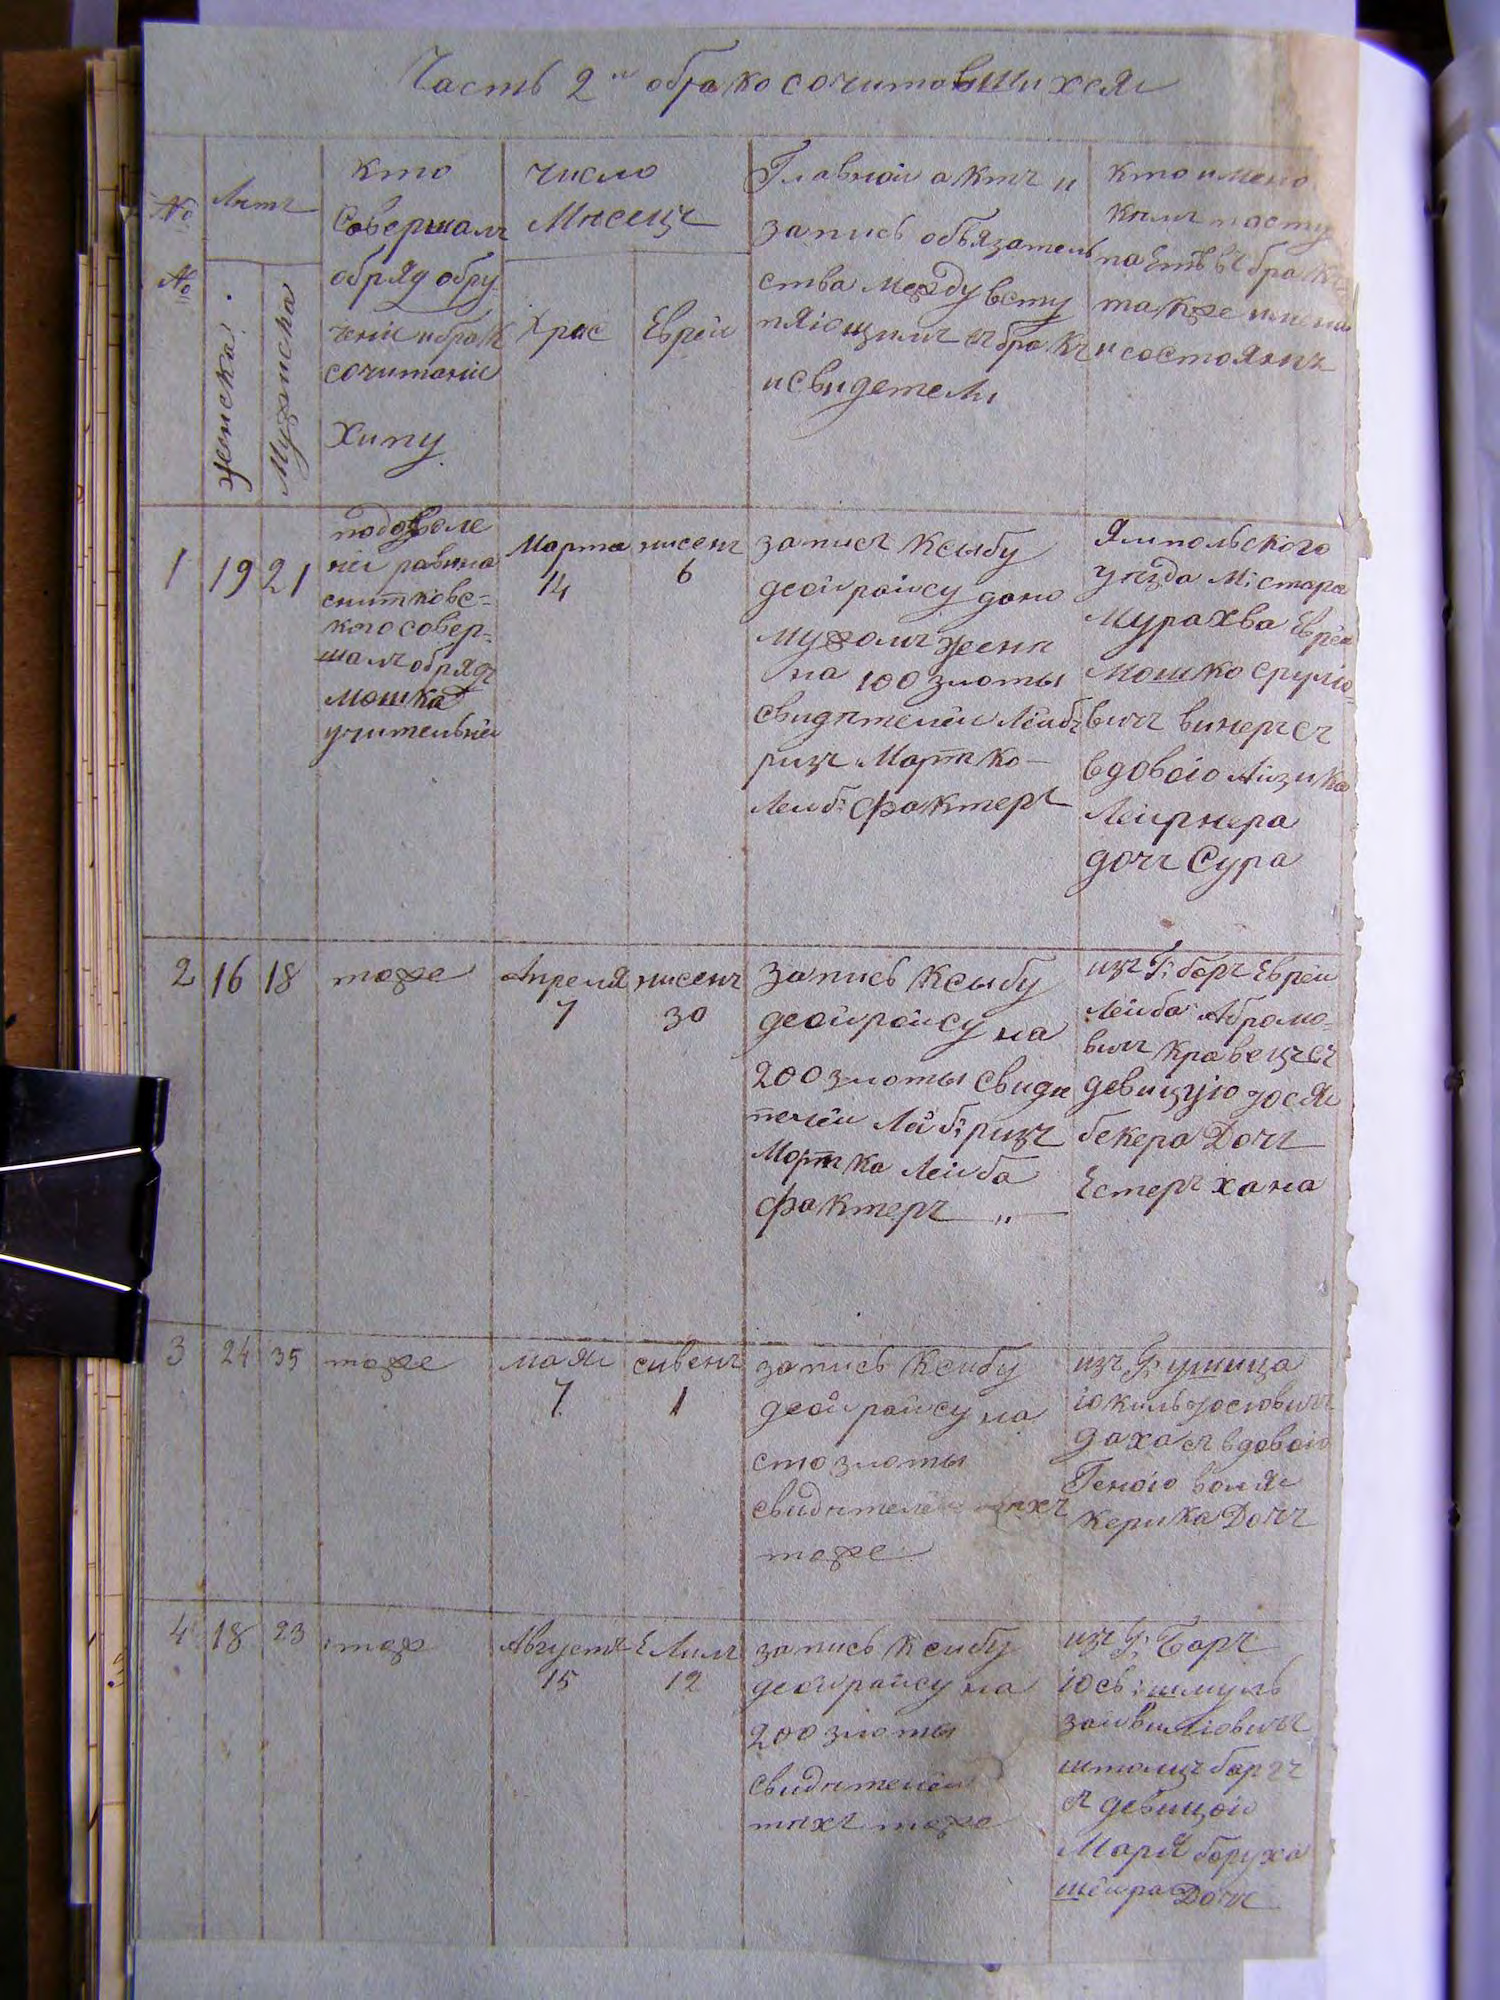 Часть 2й обрако сочитовшихся
№
№
Летъ
женска
Мужиска
кто
Совершалъ
обряд обру
ченiи и брак
сочитанiи
Хипу
число
Месецъ
Хрис
Еврей
Главной актъ и
запись объязатель
ства между всту
пяющимъ въ бракъ
и свидетели
кто имено
кимъ посту
паетъ въ бракъ
также имена
и состоянiя
1
19
21
подозволе
нiи равина
снитковс=
кого совер=
шалъ обрядъ
мошка
учительнiй
Марта
14
нисенъ
6
записъ Ксыбу
деойрайсу дано
мужомъ жене
на 100 злоты
свидетелей Лейбъ
рицъ Мортко
Лейб: факторъ
Ямпольского
уезда М: стара
Мурахва Еврей
мошко сруліо=
вичъ винеръ съ
вдовою Айзика
Лейрнера
дочъ Сура
2
16
18
тоже
Апреля
7
нисенъ
30
запись Ксыбу
деойрайсу на
200 злоты свиде
телей Лейб: рицъ
Мортка Лейба
факторъ
изъ Г: баръ Еврей
Лейба Абрамо=
вичъ кравецъ съ
девицую Іося
бекера Дочъ
Естеръ хана
3
24
35
тоже
мая
7
сивенъ
1
запись Ксибу
деойрайсу на
сто злоты
свидетелей техъ
тоже
изъ Г: ушица
Іокиль Іосіовичъ
даха съ вдовою
Геною воля
керика Дочъ
4
18
23
тож
Августъ
15
Елилъ
12
запись Ксибу
деойрайсу на
200 злоты
свидетелей
техъ тоже
изъ Г: Баръ
Іось: шмуль
зайвиліовичъ
штолцъ баргъ
съ девицой
Маря боруха
шейра Дочъ